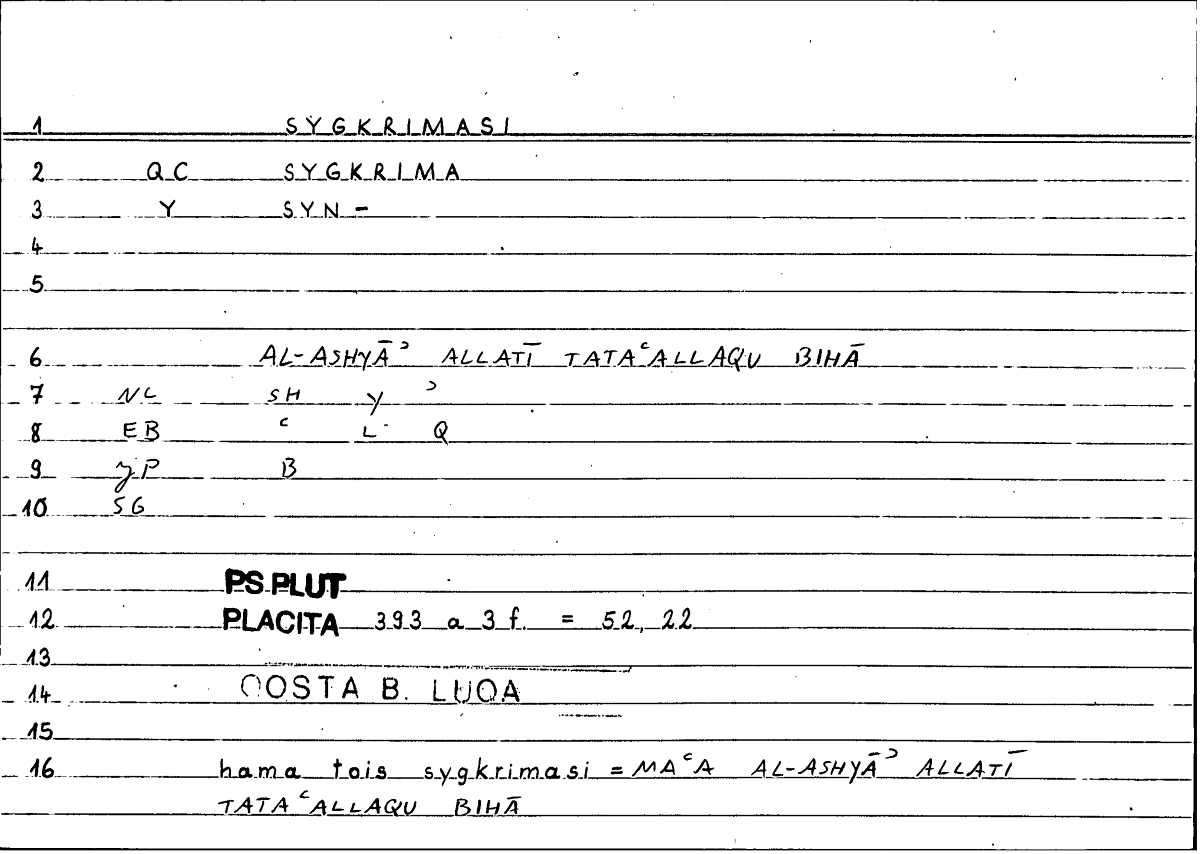 1 SYGKRIMASI
2 QC SYGKRIMA
3 Y SYN-
4
5
6 AL-ASHYĀʾ ALLATĪ TATAʿALLAQU BIHĀ
7 NL SH Y ʾ
8 EB ʿ L Q
9 YP B
10 SG
11 PS.PLUT
12 PLACITA 393 a 3 f. = 52, 22
13
14 QOSTA B. LUQA
15
16 hama tois sygkrimasi = MAʿA AL-ASHYĀʾ ALLATĪ
TATAʿALLAQU BIHĀ